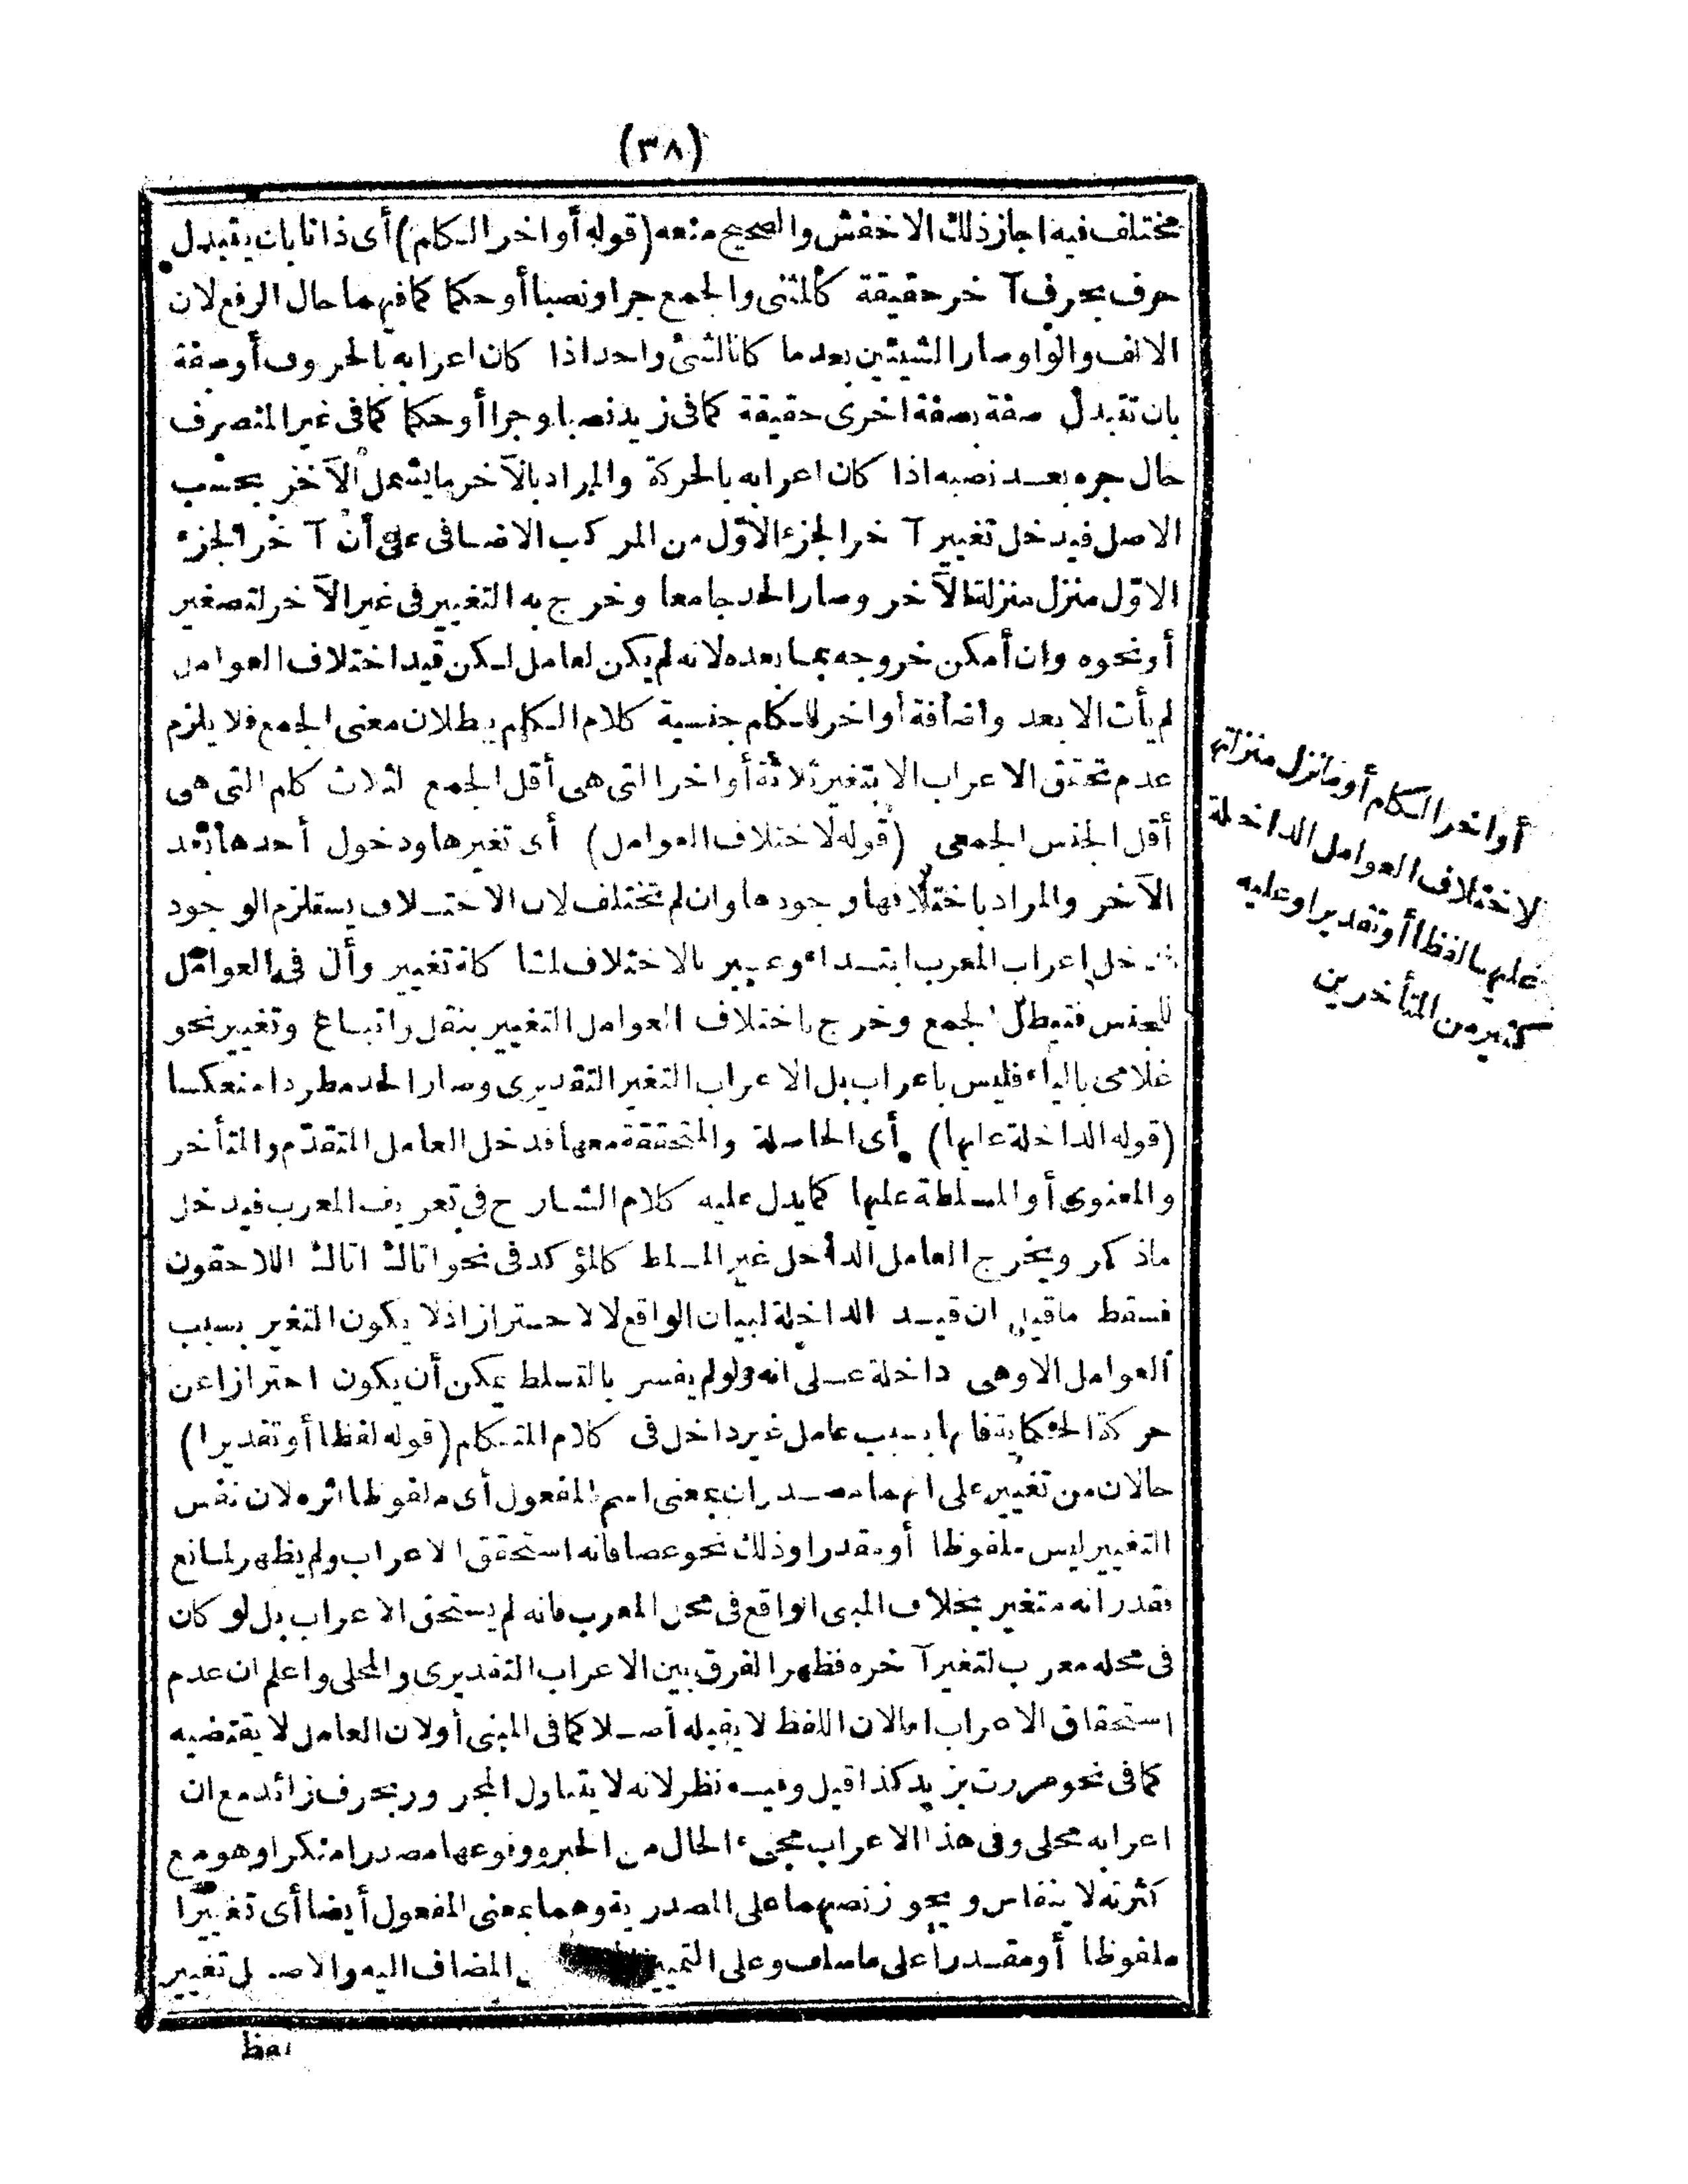 (٣٨)
مختلف فيه اجاز ذلك الاخفش والصحيح منعه (قوله أواخر الكلم) أى ذاتا بان يتبدل
حرف بحرف آخر حقيقة كالمثنى والجمع جرا ونصبا أو حكما كما فيهما حال الرفع لان
الالف والواو صارا لشيئين بعدما كانا لشئ واحد اذا كان اعرابه بالحروف أو صفة
بان تتبدل صفة بصفة اخرى حقيقة كما فى زيد نصبا وجرا أو حكما كما فى غير المنصرف
حال جره بعد نصبه اذا كان اعرابه بالحركة والمراد بالآخر ما يشمل الآخر بحسب
الاصل فيدخل تغيير آخر الجزء الاوّل من المركب الاضافى على أن آخر الجزء
الاوّل منزل منزلة الآخر وصار الحد جامعا وخرج به التغيير فى غير الآخر لتصغير
أو نحوه وان أمكن خروجه بما بعده لانه لم يكن لعامل لكن قيد اختلاف العوامل
لم يأت الا بعد واضافة أواخر للكلم جنسية كلام الكلم يبطلان معنى الجمع فلا يلزم
عدم تحقق الاعراب الا بتغير ثلاثة أواخر التى هى أقل الجمع لثلاث كلم التى هى
أقل الجنس الجمعى (قوله لاختلاف العوامل) أى تغيرها ودخول أحدها بعد
الآخر والمراد باختلافها وجودها وان لم تختلف لان الاختلاف يستلزم الوجود
فدخل اعراب المعرب ابتداء وعبر بالاختلاف لمشاكلة تغيير وأل فى العوامل
للجنس فتبطل الجمع وخرج باختلاف العوامل التغيير بنقل واتباع وتغيير نحو
غلامى بالياء فليس باعراب بل الاعراب التغير التقديرى وصار الحد مطردا منعكسا
(قوله الداخلة عليها) أى الحاصلة والمتحققة معها فدخل العامل المتقدّم والمتأخر
والمعنوى أو المسلطة عليها كما يدل عليه كلام الشارح فى تعريف المعرب فيدخل
ما ذكر ويخرج العامل الداخل غير المسلط كالمؤكد فى نحو اتاك اتاك اللاحقون
فسقط ما قيل ان قيد الداخلة لبيان الواقع لا لاحتراز اذ لا يكون التغير بسبب
العوامل الا وهى داخلة على انه ولو لم يفسر بالتسلط يمكن أن يكون احترازا عن
حركة الحكاية فانها بسبب عامل غير داخل فى كلام المتكلم (قوله لفظا أو تقديرا)
حالان من تغيير على انهما مصدران بمعنى اسم المفعول أى ملفوظا اثره لان نفس
التغيير ليس ملفوظا أو مقدرا وذلك نحو عصا فانه استحق الاعراب ولم يظهر لمانع
فقدر انه متغير بخلاف المبنى الواقع فى محل المعرب فانه لم يستحق الاعراب بل لو كان
فى محله معرب لتغير آخره فظهر الفرق بين الاعراب التقديرى والمحلى واعلم ان عدم
استحقاق الاعراب اما لان اللفظ لا يقبله أصلا كما فى المبنى أو لان العامل لا يقتضيه
كما فى نحو مررت بزيد كذا قيل وفيه نظر لانه لا يتناول المجرور بحرف زائد مع ان
اعرابه محلى وفى هذا الاعراب مجىء الحال من الخبر ووقوعها مصدرا منكرا وهو مع
كثرته لا ينقاس ويجوز نصبهما على المصدرية وهما بمعنى المفعول أيضا أى تغييرا
ملفوظا أو مقدرا على ما سلف وعلى التمييز المضاف اليه والاصل تغيير
لفظ
أواخر الكلم أو ما نزل منزلتها
لاختلاف العوامل الداخلة
عليها لفظا أو تقديرا وعليه
كثير من المتأخرين